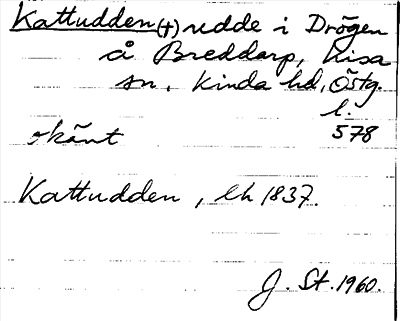 Kattudden (†) udde i Drögen
å Breddarp, Kisa
sn, Kinda hd, Östg.
l.
okänt 578
Kattudden, lh 1837.
J. St. 1960.